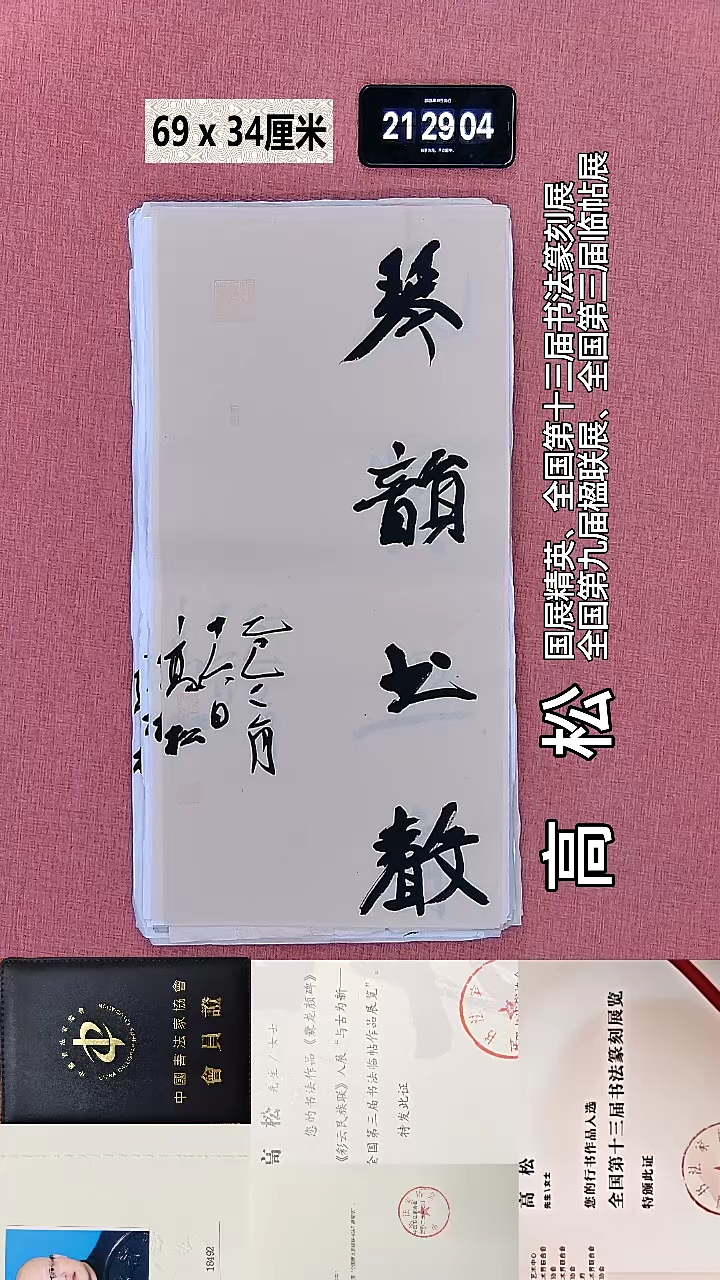 69 x 34厘米
21 29 04
琴韻书聲
乙巳二月
十六日
高松
高 松
国展精英、全国第十三届书法篆刻展
全国第九届楹联展、全国第三届临帖展
中國書法家協會
會員證
高 松 先生/女士
您的书法作品《爨龙颜碑》
《彩云民族联》入展“与古为新——
全国第三届书法临帖作品展览”。
特发此证
18492
高 松
先生\女士
您的行书作品入选
全国第十三届书法篆刻展览
特颁此证